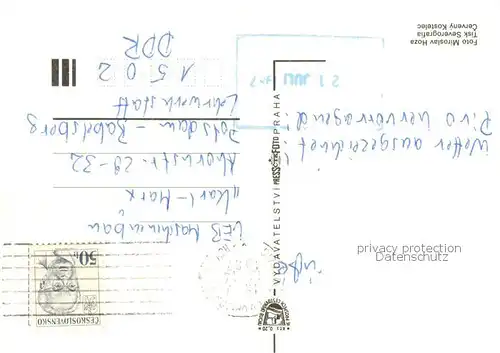 Wetter ausgezeichnet!
Pivo hervorragend!
VEB Maschinenbau
„Karl-Marx"
Ahornstr. 29-32
Potsdam - Babelsberg
Lehrwerkstatt
1502
DDR
50 h
ČESKOSLOVENSKO
VYDAVATELSTVÍ PRESSFOTO PRAHA
21 JULI
Foto Miroslav Hoza
Tisk Severografia
Červený Kostelec
privacy protection
Datenschutz